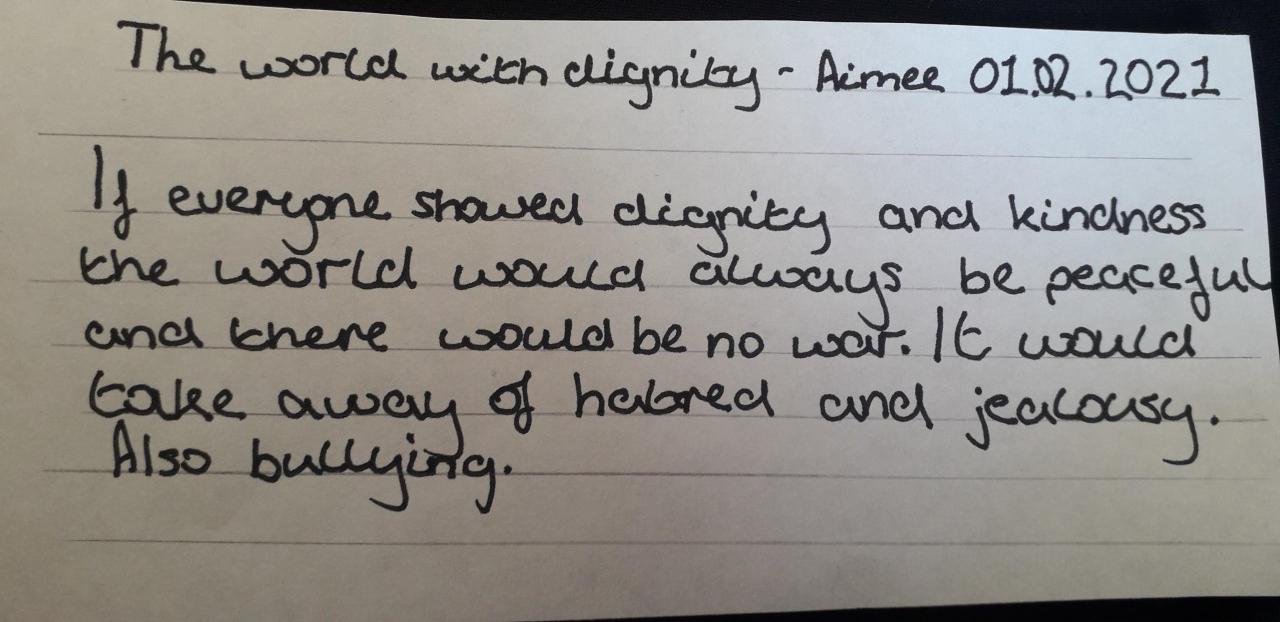 The world with dignity - Aimee 01.02.2021
If everyone showed dignity and kindness
the world would always be peaceful
and there would be no war. It would
take away of hatred and jealousy.
Also bullying.